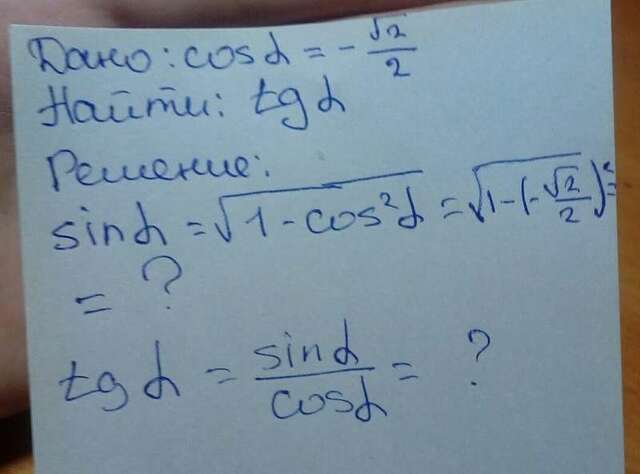 Дано: cos α = - √2/2
Найти: tg α
Решение:
sin α = √1 - cos²α = √1-(-√2/2)² =
= ?
tg α = sin α/cos α = ?